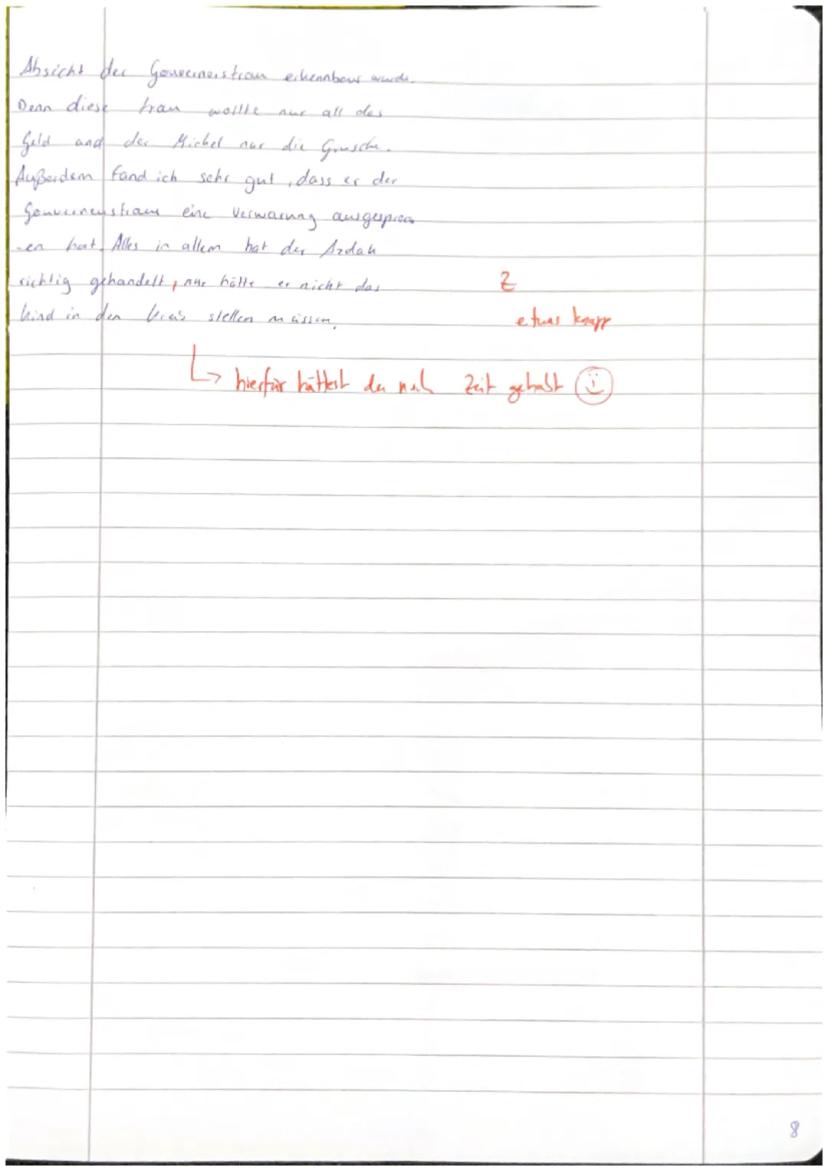 Absicht der Gouverneursfrau erkennbar wurde.
Denn diese Frau wollte nur all das
Geld und der Michel nur die Grusche.
Außerdem fand ich sehr gut, dass er der
Gouverneursfrau eine Verwarnung ausgesproch
-en hat. Alles in allem hat der Azdak
richtig gehandelt, nur hätte er nicht das
Z
Kind in den Kreis stellen müssen.
etwas knapp
↳ hierfür hättest du noch Zeit gehabt ☺
8